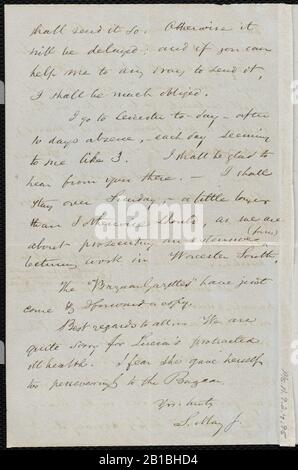 shall send it so. Otherwise it
will be delayed; and if you can
help me to any way to send it,
I shall be much obliged.
I go to Leicester to-day - after
10 days absence, each day seeming
to me like 3. I shall be glad to
hear from you there. - I shall
stay over Sunday, - a little longer
than I otherwise should, as we are
(firm)
about prosecuting an extensive
lecturing work in Worcester South.
The "Bazaar Gazettes" have just
come & I forward a copy.
Best regards to all. We are
quite sorry for Lucia's protracted
ill health. I fear she gave herself
too perseveringly to the Bazaar.
Yrs. truly
S. May Jr.
alamy
Image ID: 2E1BHD4
www.alamy.com